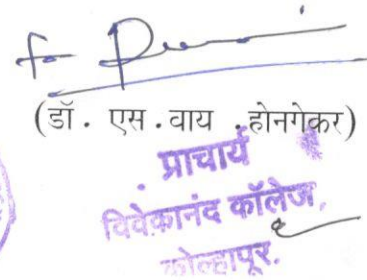 (डॉ. एस.वाय .होनगेकर)
प्राचार्य
विवेकानंद कॉलेज,
कोल्हापूर.